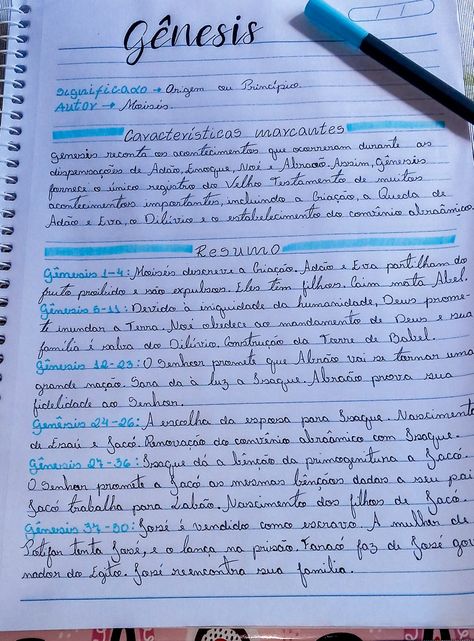 Gênesis
Significado → Origem ou Princípio.
Autor → Moisés.
Características marcantes
Gênesis reconta os acontecimentos que ocorreram durante as
dispensações de Adão, Enoque, Noé e Abraão. Assim, Gênesis
fornece o único registro do Velho Testamento de muitos
acontecimentos importantes, incluindo a Criação, a Queda de
Adão e Eva, o Dilúvio e o estabelecimento do convênio abraâmico.
Resumo
Gênesis 1-4: Moisés descreve a Criação. Adão e Eva partilham do
fruto proibido e são expulsos. Eles têm filhos. Caim mata Abel.
Gênesis 5-11: Devido à iniquidade da humanidade, Deus prome-
te inundar a Terra. Noé obedece ao mandamento de Deus e sua
família é salva do Dilúvio. Construção da Torre de Babel.
Gênesis 12-23: O Senhor promete que Abraão vai se tornar uma
grande nação. Sara dá à luz a Isaque. Abraão prova sua
fidelidade ao Senhor.
Gênesis 24-26: A escolha da esposa para Isaque. Nascimento
de Esaú e Jacó. Renovação do convênio abraâmico com Isaque.
Gênesis 27-36: Isaque dá a bênção da primogenitura a Jacó.
O Senhor promete a Jacó as mesmas bênçãos dadas a seu pai
Jacó trabalha para Labão. Nascimento dos filhos de Jacó.
Gênesis 37-50: José é vendido como escravo. A mulher de
Potifar tenta José, e o lança na prisão. Faraó faz de José gover
nador do Egito. José reencontra sua família.